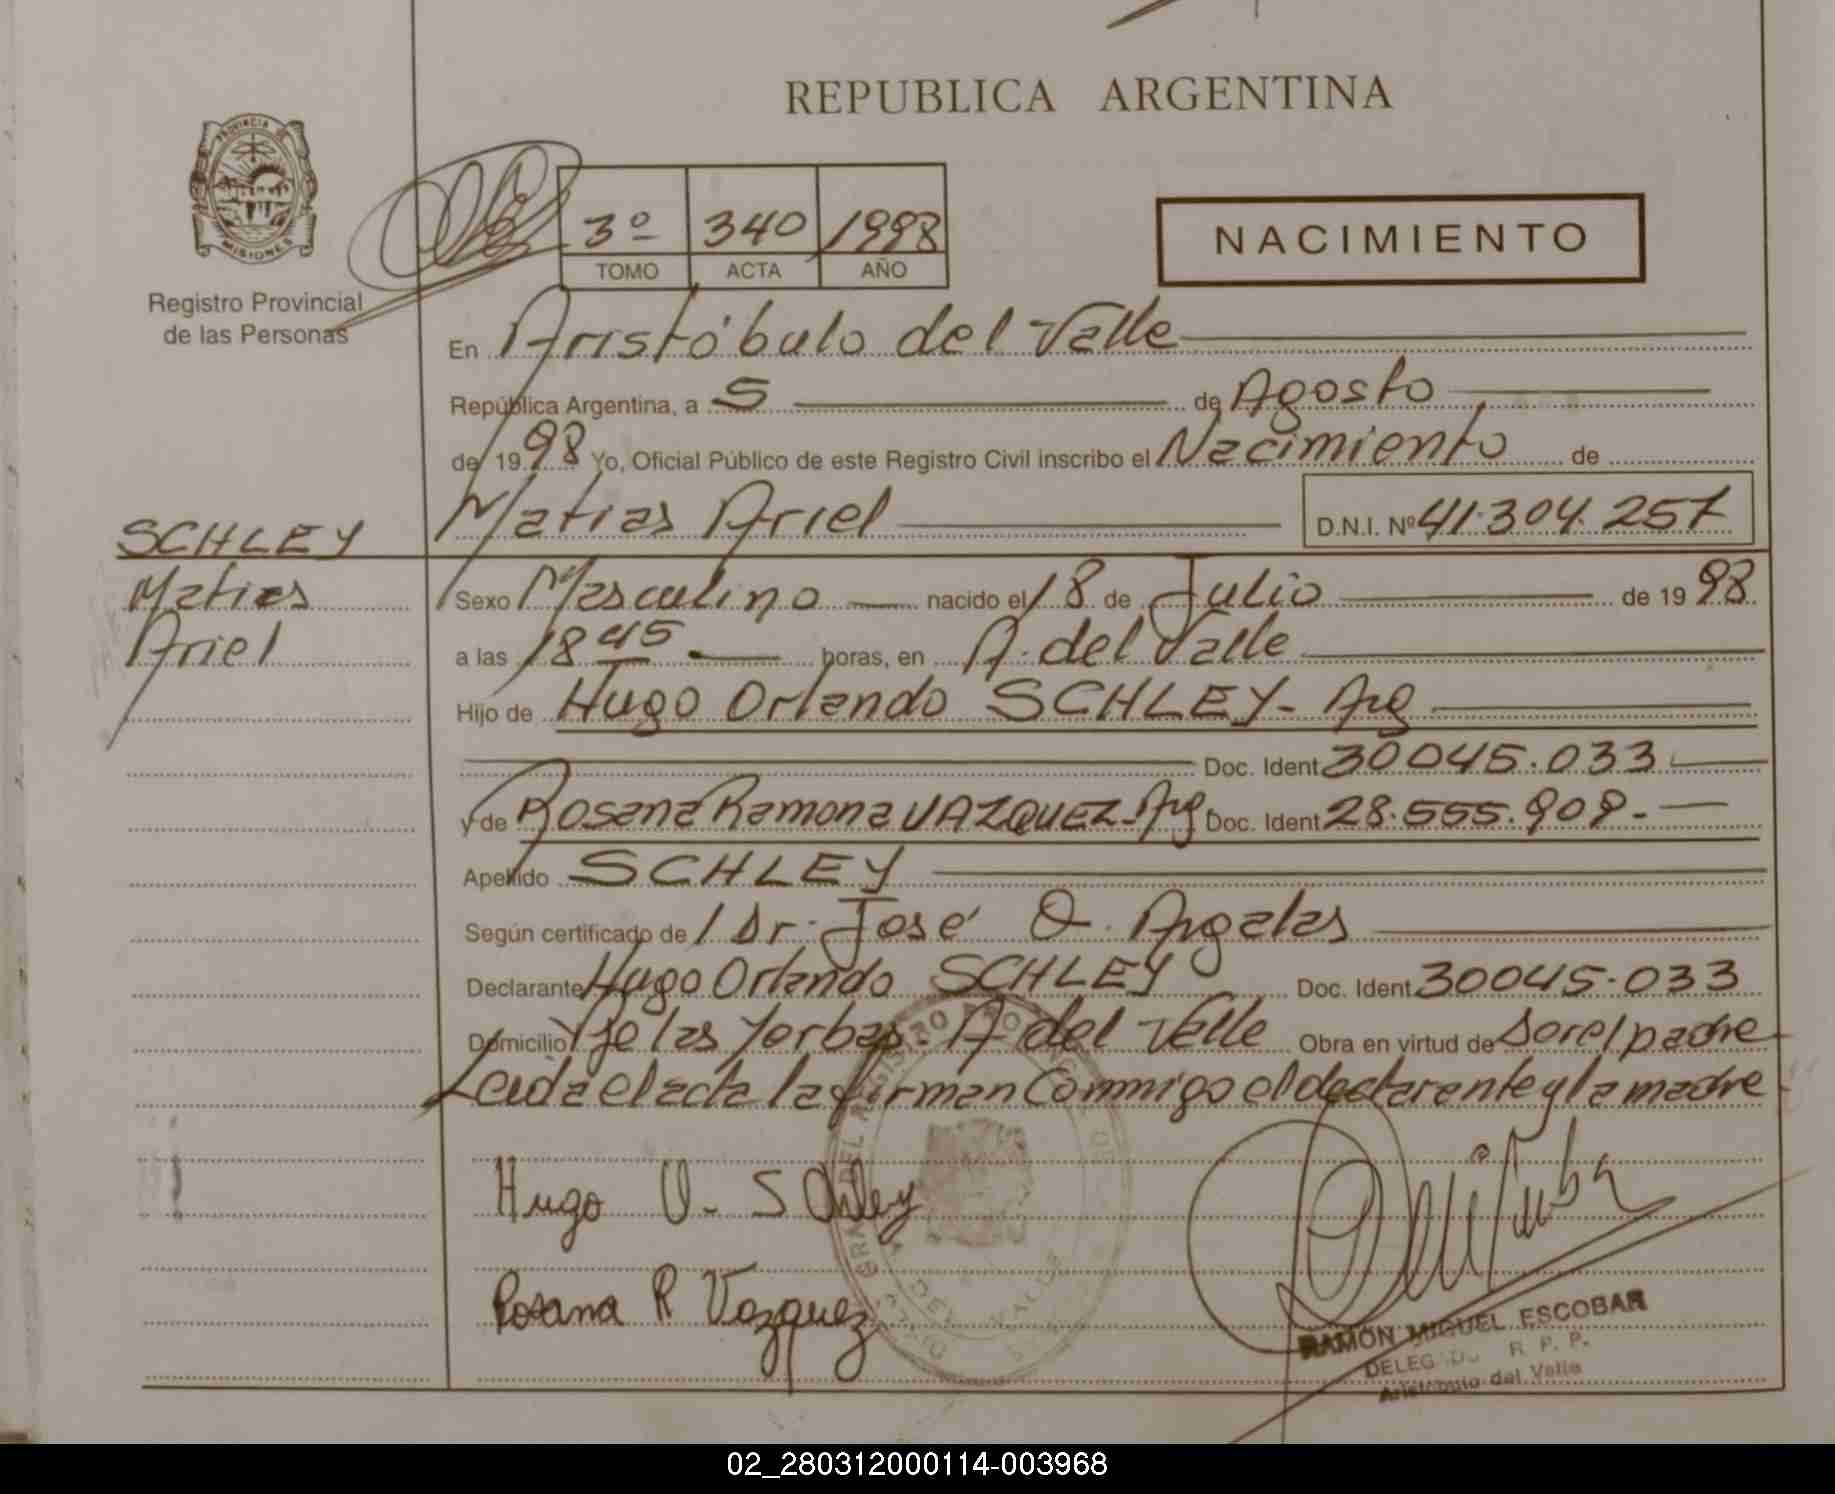 REPUBLICA ARGENTINA
PROVINCIA DE
MISIONES
Registro Provincial
de las Personas
3º 340 1998
TOMO ACTA AÑO
NACIMIENTO
En Aristóbulo del Valle
República Argentina, a 5 de Agosto
de 1998 Yo, Oficial Público de este Registro Civil inscribo el Nacimiento de
Matias Ariel D.N.I. Nº 41.304.257
SCHLEY
Matias
Ariel
Sexo Masculino nacido el 18 de Julio de 1998
a las 18 45 horas, en A. del Valle
Hijo de Hugo Orlando SCHLEY - Arg
Doc. Ident 30045.033
y de Rosana Ramona VAZQUEZ - Arg. Doc. Ident 28.555.909.-
Apellido SCHLEY
Según certificado de / Dr. José O. Argalas
Declarante Hugo Orlando SCHLEY Doc. Ident 30045.033
Domicilio Yje las Yerbas - A del Valle Obra en virtud de Ser el padre
Leida el acta la firman Conmigo el declarante y la madre
Hugo O. Schley
Rosana R Vazquez
RAMÓN MIGUEL ESCOBAR
DELEGADO R. P. P.
Aristóbulo del Valle
02_280312000114-003968